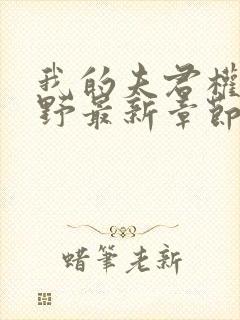 我的夫君權
野最新章節
蜡筆老新